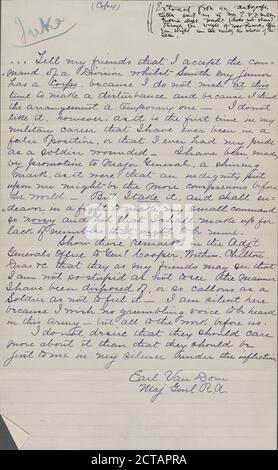 (Copy)
Extract from an autograph
letter
.... Tell my friends that I accept the com-
mand of a Division whilst Smith my junior
has a Corps, because I do not wish at this
time to make a disturbance and because I think
the arrangement a temporary one — I do not
like it however, as it is the first time in my
military career that I have ever been in a
false position, or that I ever had my pride
as a Soldier wounded — I have been made
by promotion to Major General, a shining
mark, as it were that an indignity put
upon me might be the more conspicuous before
the world — But I take it, and shall en-
deavor in a fight to make my small command
so noisy and so that it will made up for
lack of numbers that ought to be mine.
Show these remarks in the Adjt
Generals Office to Genl Cooper, Withers, Chilton,
&c that they as my friends may see that
I am not so stupid as not to see the manner
I have been disposed of, or so callous as a
Soldier as not to feel it — I am silent here
because I wish no grumbling voice to be heard
in this Army — but all to the work before us.
I do not desire that they should care
more about it than that they should be
just to me in my silence under the infliction
Earl Van Dorn
Maj Genl P.A.
alamy
Image ID: 2CTAPRA
www.alamy.com